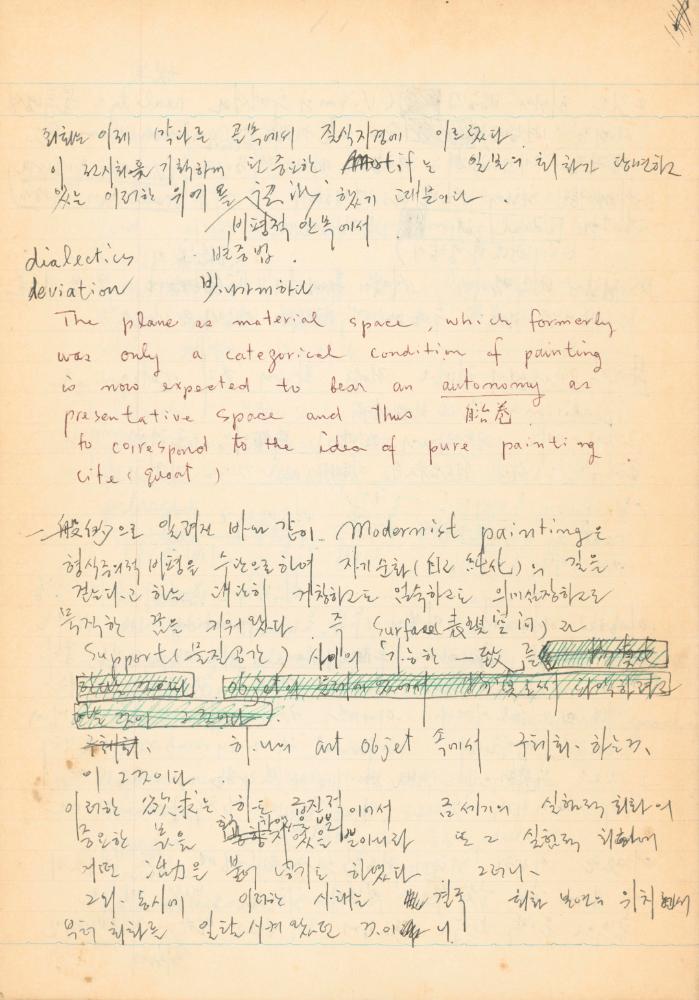 회화는 이제 막다른 골목에서 질식지경에 이르렀다
이 전시회를 기획하며 된 중요한 motif는 일본의 회화가 당면하고
있는 이러한 위기를 했기 때문이다.
비평적 안목에서
dialectics 변증법.
deviation 빗나가게하다
The plane as material space, which formerly
was only a categorical condition of painting
is now expected to bear an autonomy as
presentative space and thus
to correspond to the idea of pure painting
cite (quoat)
一般的으로 알려진 바와 같이 Modernist painting은
형식주의적 비평을 수단으로하여 자기순화(自己純化)의 길을
걷는다고 하는 대단히 거창하고도 엄숙하고도 의미심장하고도
독특한 꿈을 키워왔다 즉 Surface(表現空间)과
Support(물질공간) 사이의 「가능한 一致」를
objet에
그것이다
구체화, 하나의 art objet 속에서 구체화 하는것,
이 그것이다
이러한 欲求는 하도 급진적이어서 금세기의 실험적 회화의
중요한 몫을 뿐아니라 또 그 실험적 회화에
어떤 活力을 불어 넣기도 하였다 그러나
그와 동시에 이러한 사태는 결국 회화 본연의 위치에서
부터 회화를 일탈시켜 왔었던 것이니